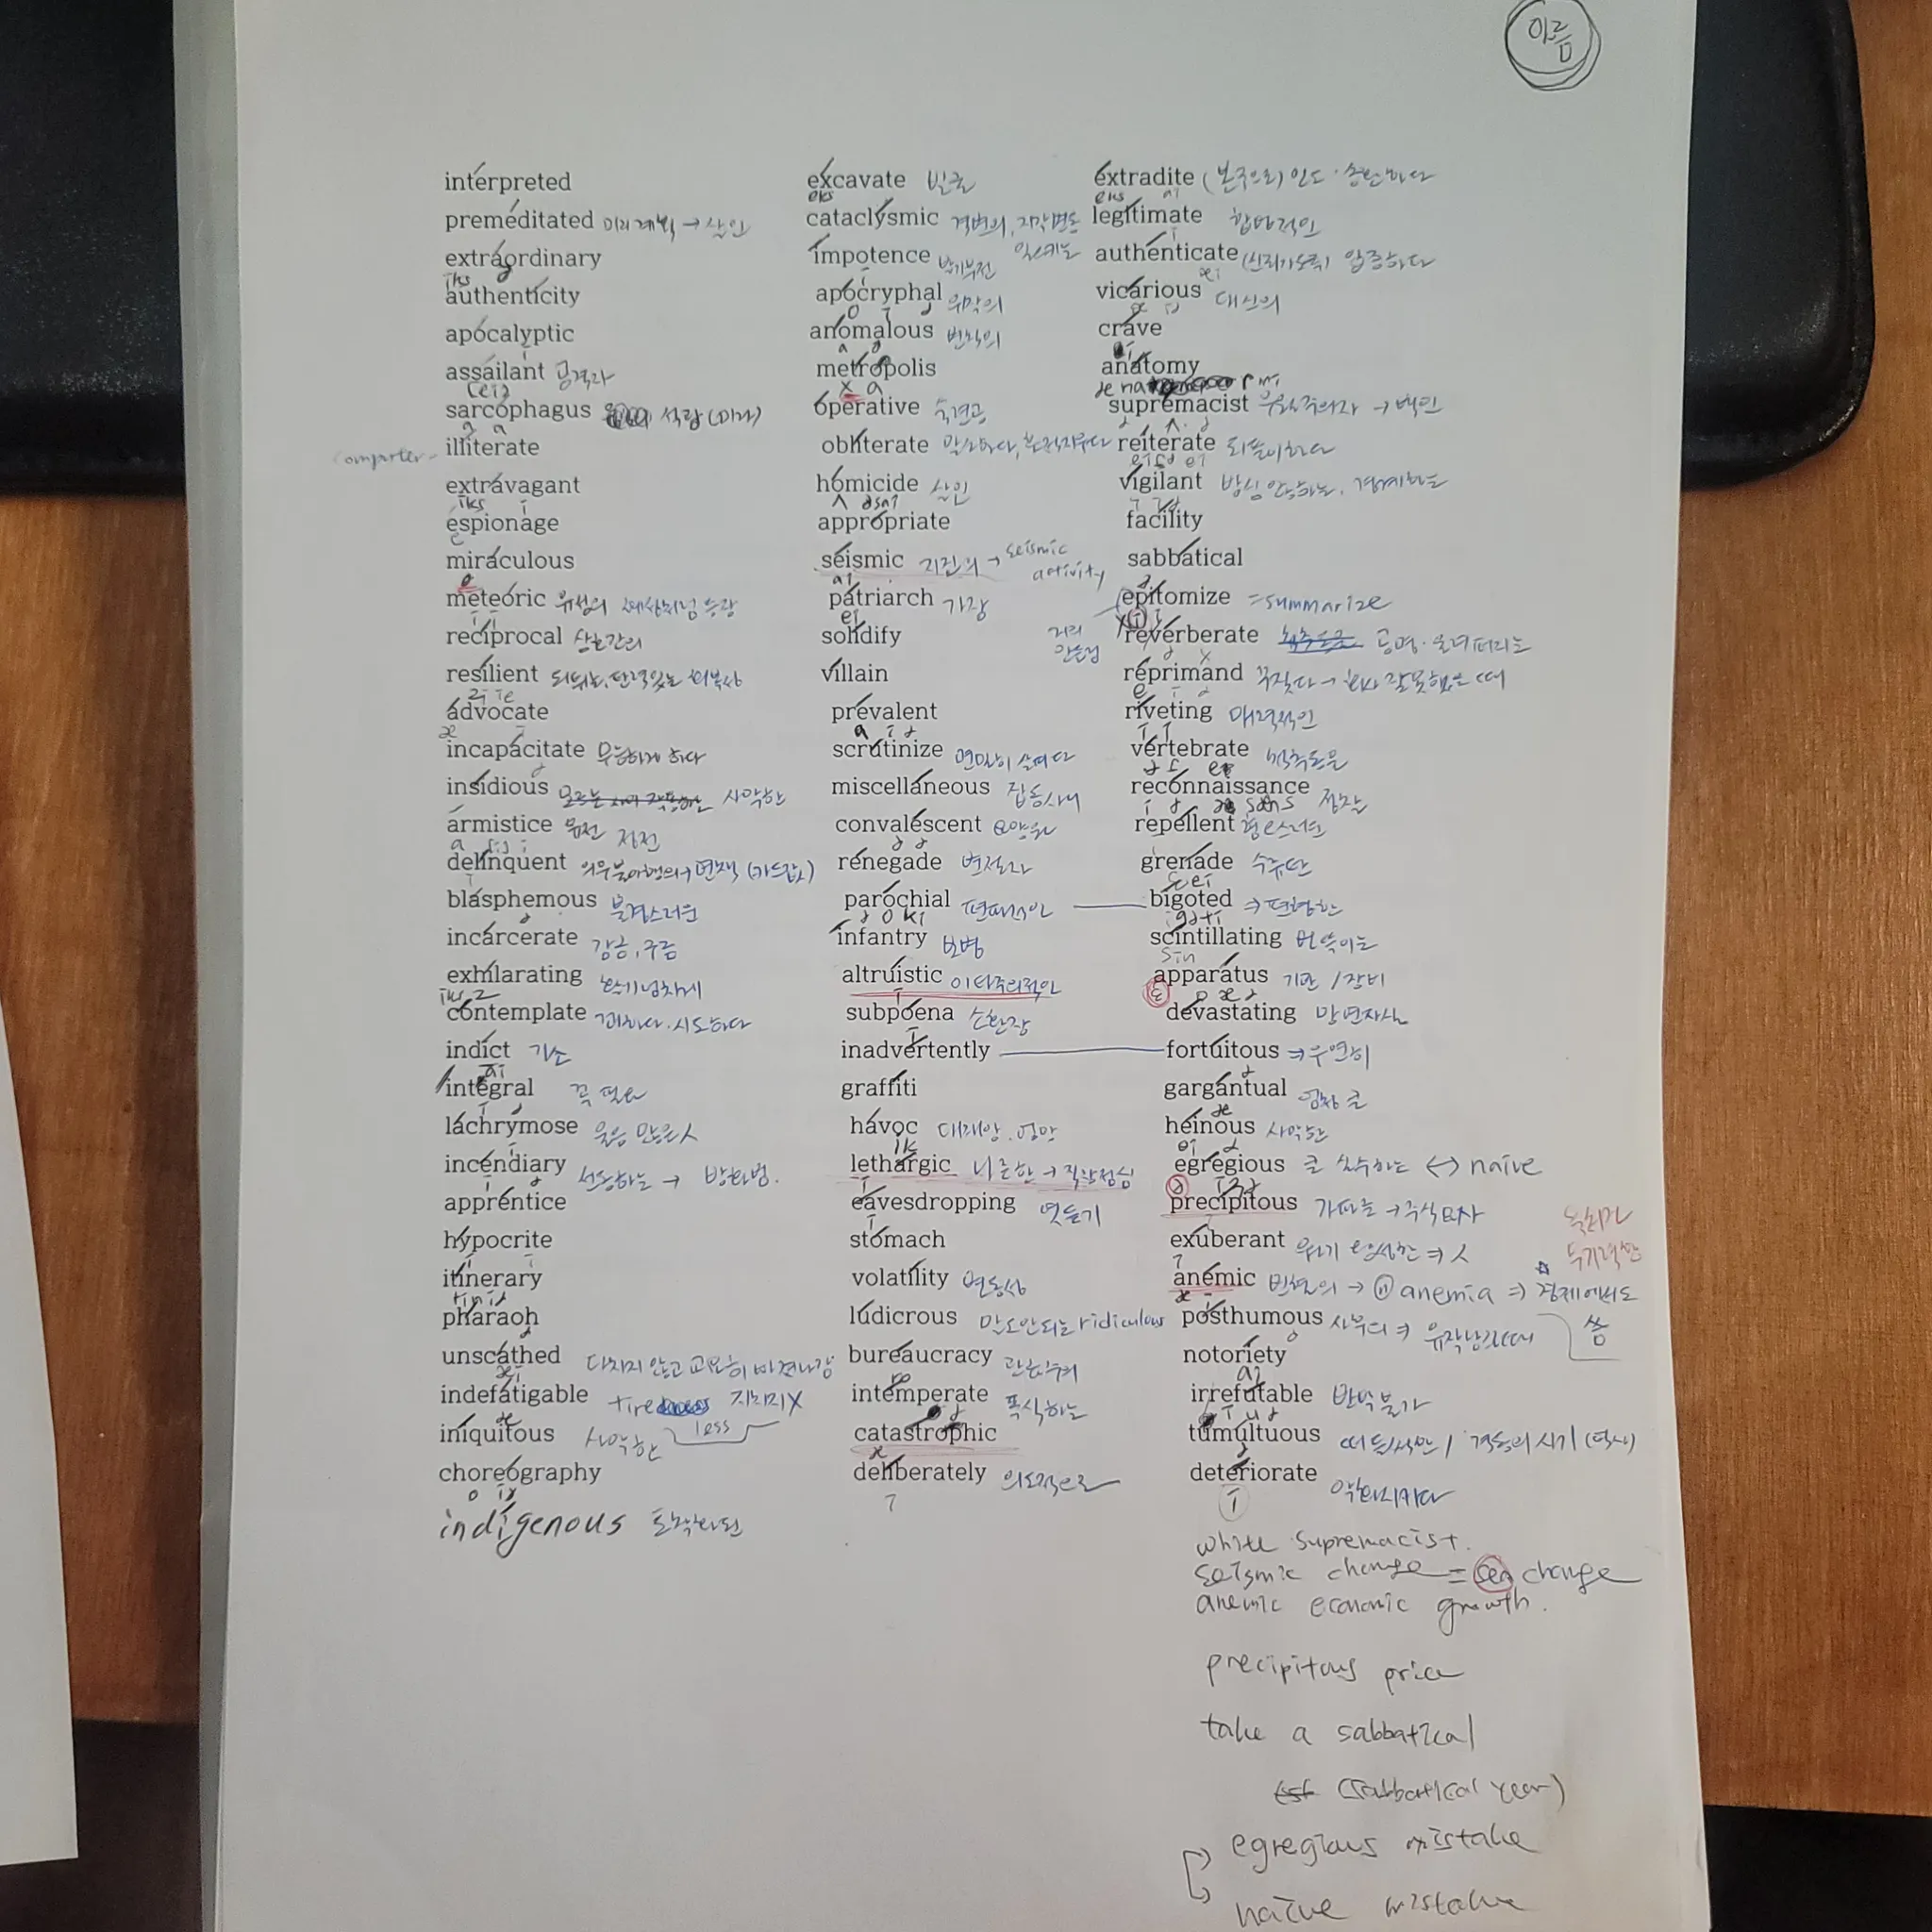 이름
interpreted
premeditated 미리계획 → 살인
extraordinary
iks
authenticity
apocalyptic
assailant 공격자
sarcophagus 석관 (미라)
computer - illiterate
extravagant
iks
espionage
miraculous
meteoric 유성의
reciprocal 상호간의
resilient 되튀는, 탄력있는 회복상
advocate
incapacitate 무능하게 하다
insidious 사악한
armistice 휴전 정전
delinquent
blasphemous 불경스러운
incarcerate 감금, 구금
exhilarating
contemplate 꾀하다. 시도하다
indict 기소
integral 꼭 필요
lachrymose 울음 많은 人
incendiary 선동하는 → 방화범.
apprentice
hypocrite
itinerary
pharaoh
unscathed 다치지 않고
indefatigable tireless 지치지X
iniquitous 사악한
choreography
indigenous 토착화된
excavate 발굴
eks
cataclysmic 격변의,
impotence 발기부전
apocryphal
anomalous 변칙의
metropolis
operative 숙련공
obliterate 말소하다, 흔적지우다
homicide 살인
appropriate
seismic 지진의 → seismic activity
patriarch 가장
solidify
villain
prevalent
scrutinize 면밀히 살피다
miscellaneous 잡동사니
convalescent 요양원
renegade 변절자
parochial 편파적인
infantry 보병
altruistic 이타주의적인
subpoena 소환장
inadvertently
graffiti
havoc 대재앙. 엉망
lethargic 나른한 → 직장점심
eavesdropping 엿듣기
stomach
volatility 변동성
ludicrous 말도안되는 ridiculous
bureaucracy 관료주의
intemperate 폭식하는
catastrophic
deliberately 의도적으로
extradite (본국으로) 인도·송환하다
eks
legitimate 합법적인
authenticate (신뢰가도록) 입증하다
vicarious 대신의
crave
anatomy
supremacist 우월주의자 → 백인
reiterate 되풀이하다
vigilant 방심 안하는, 경계하는
facility
sabbatical
epitomize = summarize
reverberate 공명·울려퍼지는
reprimand 꾸짖다 → 회사 잘못했을 때
riveting 매력적인
vertebrate 척추동물
reconnaissance 정찰
repellent 혐오스러운
grenade 수류탄
bigoted ⇒ 편협한
scintillating 번쩍이는
apparatus 기관 / 장비
devastating 망연자실
fortuitous ⇒ 우연히
gargantual 엄청 큰
heinous 사악한
egregious 큰 실수하는 ↔ naive
precipitous 가파른 → 주식투자
exuberant
anemic 빈혈의 → ⓝ anemia ⇒ 경제에서도 씀
posthumous 사후의 ⇒ 유작남길때
notoriety
irrefutable 반박불가
tumultuous 떠들썩한 / 격동의 시기 (역사)
deteriorate 악화시키다
white supremacist.
seismic change = sea change
anemic economic growth.
precipitous price
take a sabbatical
(sabbatical year)
egregious mistake
naive mistake